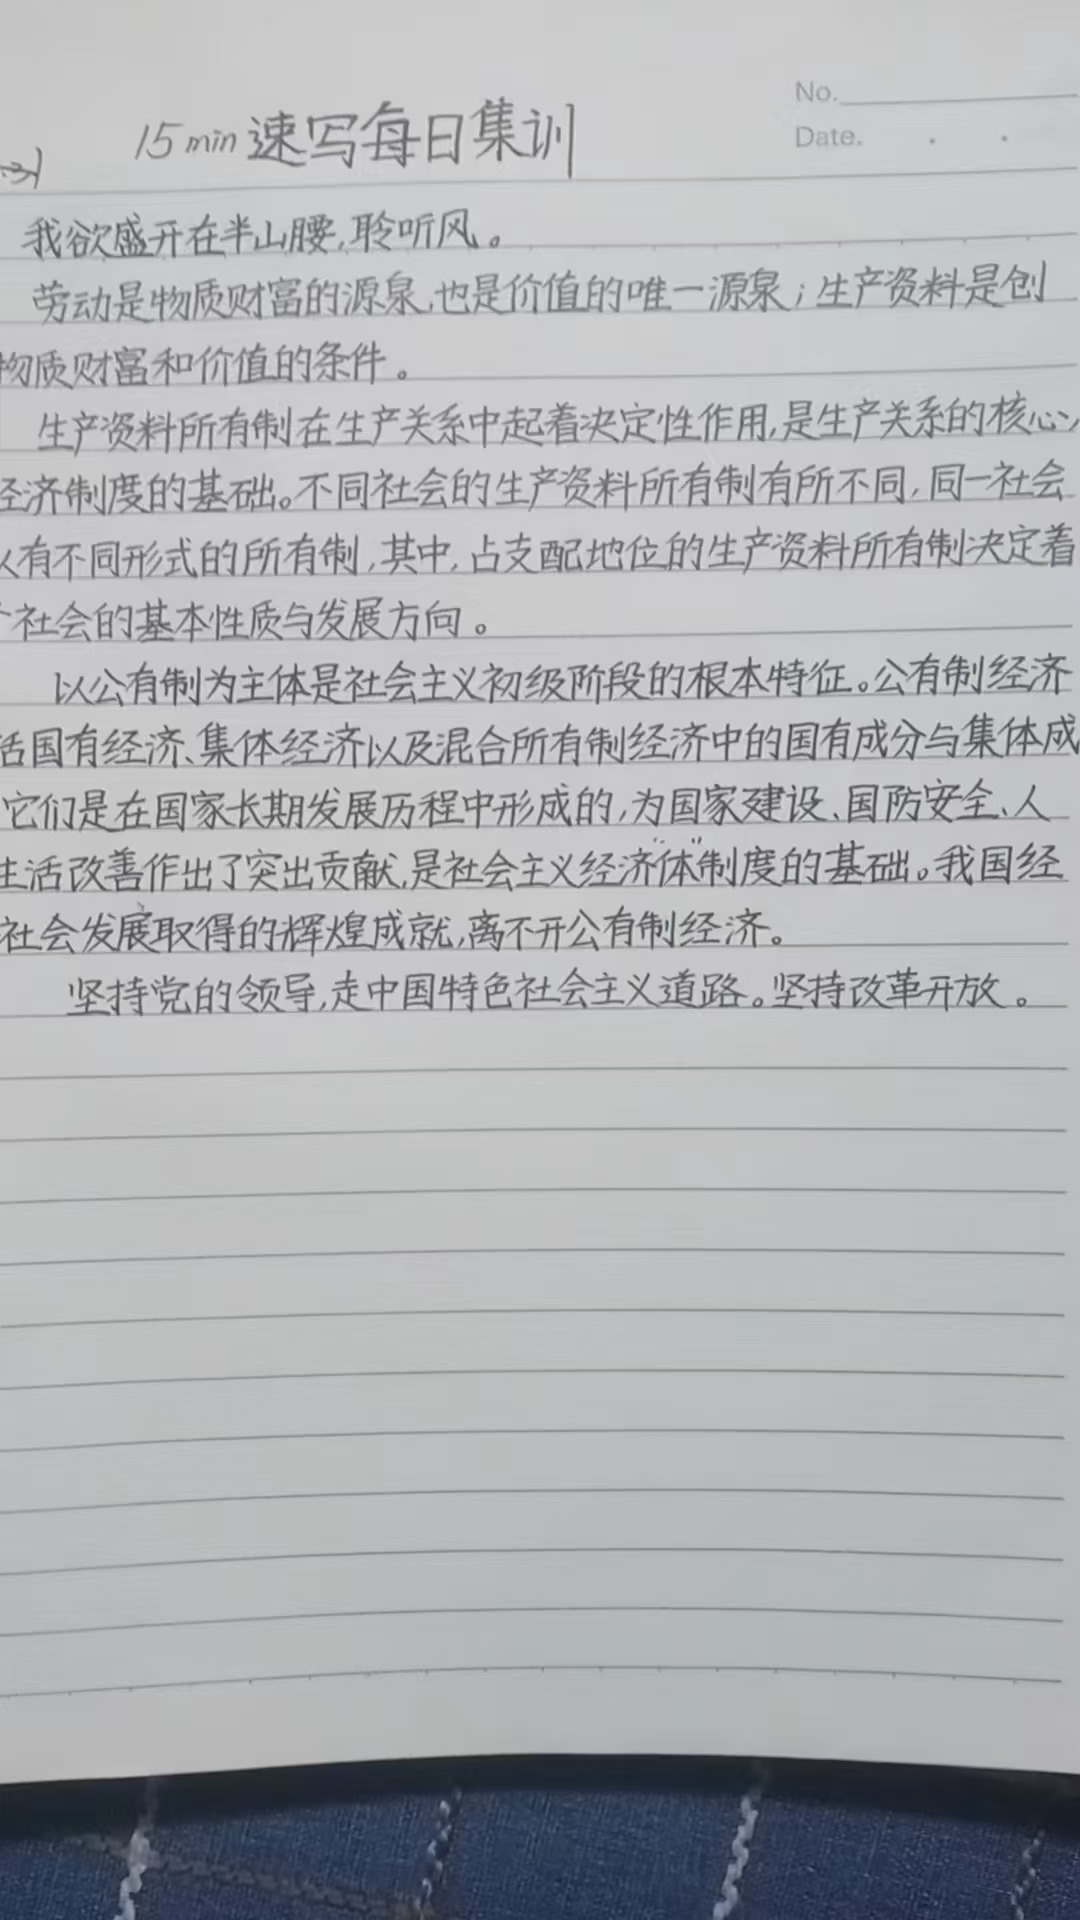 No.
15min速写每日集训
Date.
我欲盛开在半山腰,聆听风。
劳动是物质财富的源泉,也是价值的唯一源泉;生产资料是创
物质财富和价值的条件。
生产资料所有制在生产关系中起着决定性作用,是生产关系的核心,
经济制度的基础。不同社会的生产资料所有制有所不同,同一社会
以有不同形式的所有制,其中,占支配地位的生产资料所有制决定着
个社会的基本性质与发展方向。
以公有制为主体是社会主义初级阶段的根本特征。公有制经济
括国有经济、集体经济以及混合所有制经济中的国有成分与集体成
它们是在国家长期发展历程中形成的,为国家建设、国防安全、人
生活改善作出了突出贡献,是社会主义经济"体"制度的基础。我国经
社会发展取得的辉煌成就,离不开公有制经济。
坚持党的领导,走中国特色社会主义道路。坚持改革开放。